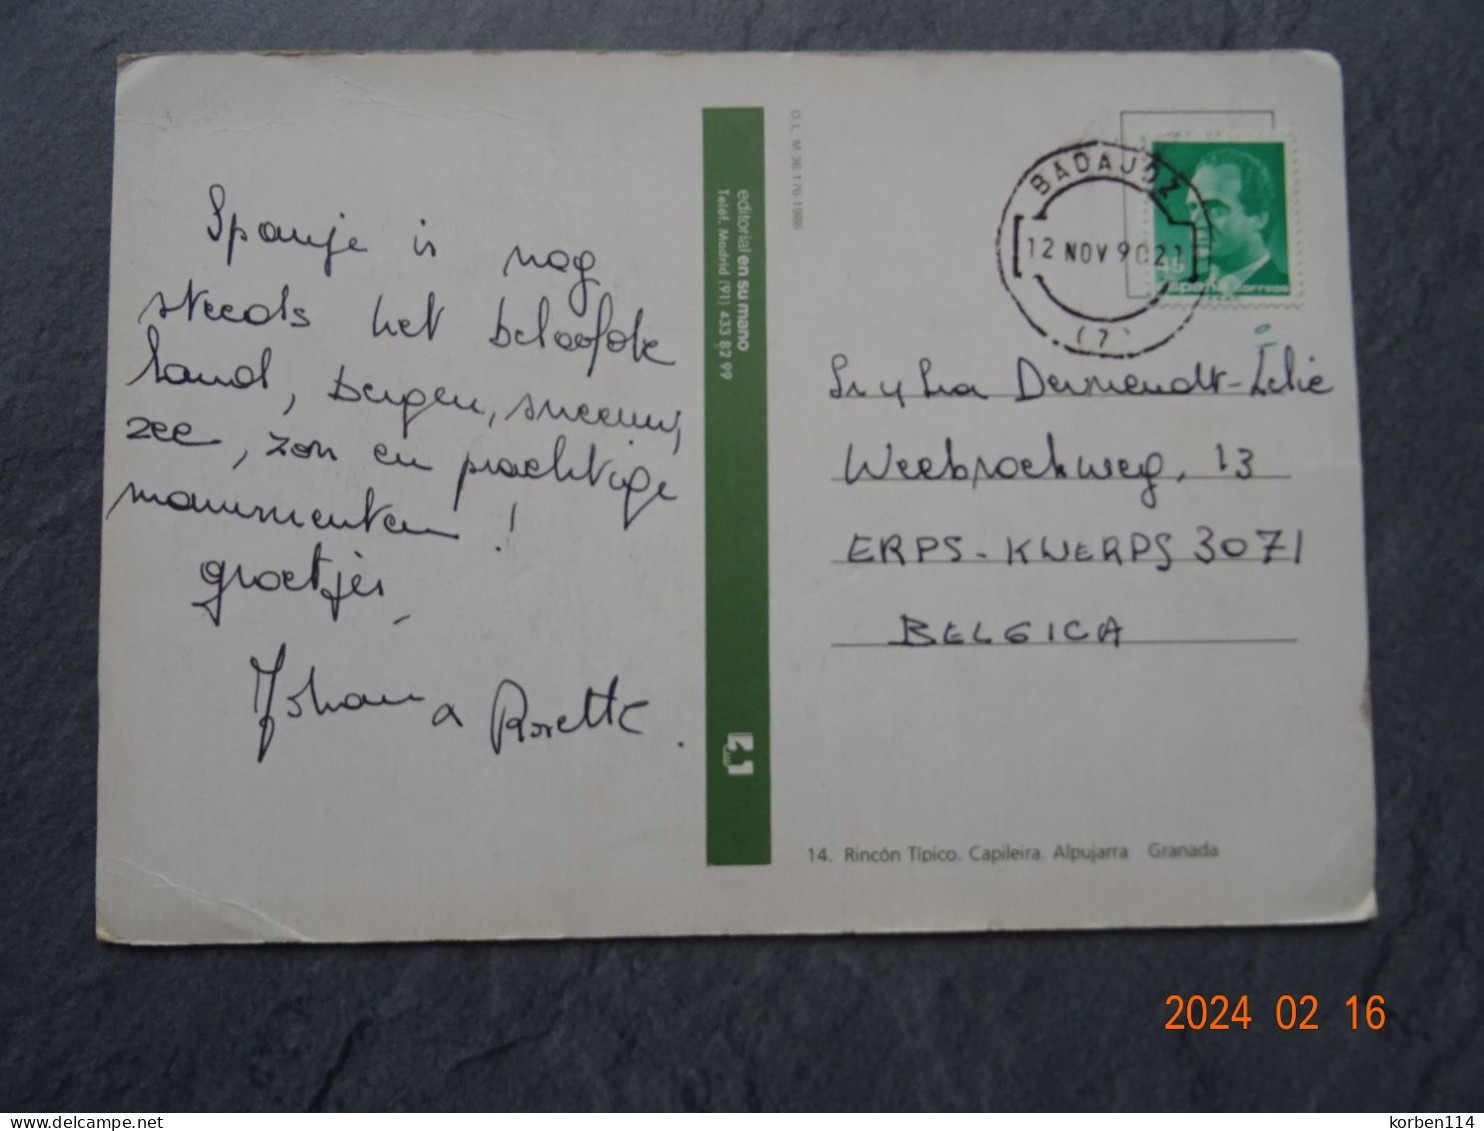 Spanje is nog
steeds het beloofde
land, bergen, sneeuw,
zee, zon en prachtige
monumenten !
groetjes,
Johan & Rosette.
editorial en su mano
Teléf. Madrid (91) 433 82 99
D. L. M-36.176-1986
BADAJOZ
12 NOV 90 21
(7)
España correos
Sr y Sra Dermendt-Lelie
Weebroekweg, 13
ERPS-KWERPS 3071
BELGICA
14. Rincón Típico. Capileira. Alpujarra Granada
2024 02 16
korben114